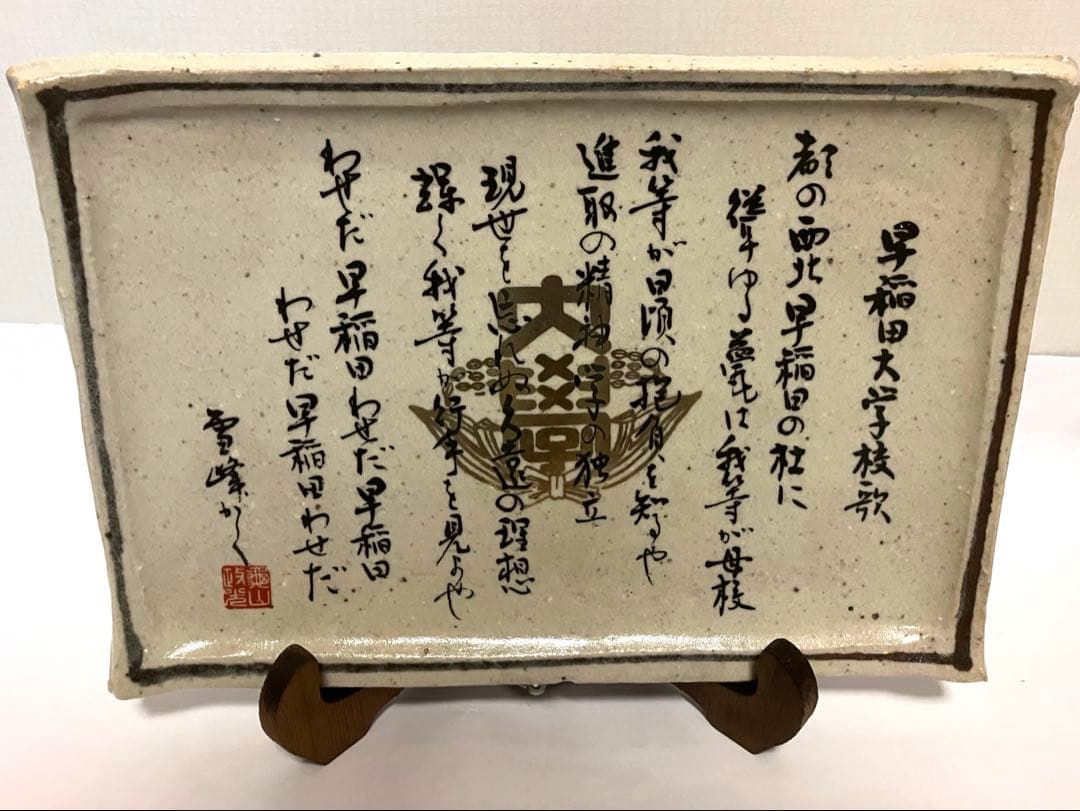 早稲田大学校歌
都の西北早稲田の杜に
聳ゆる甍は我等が母校
我等が日頃の抱負を知るや
進取の精神学の独立
現世を忘れぬ久遠の理想
輝く我等が行手を見よや
わせだ早稲田わせだ早稲田
わせだ早稲田わせだ
雪峰かく
大學